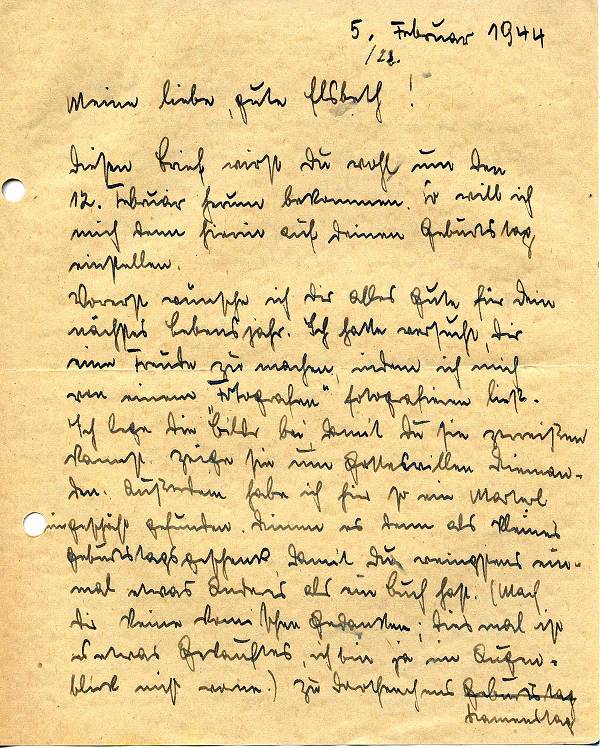 5. Februar 1944
/22.
Meine liebe, gute Elsbeth!
Diesen Brief wirst Du wohl um den
12. Februar herum bekommen. So will ich
mich denn hierin auf Deinen Geburtstag
einstellen.
Vorerst wünsche ich Dir alles Gute für Dein
nächstes Lebensjahr. Ich hatte versucht, Dir
eine Freude zu machen, indem ich mich
von einem "Fotografen" fotografieren ließ.
Ich lege die Bilder bei, damit Du sie zerreißen
kannst. Zeige sie um Gotteswillen Nieman-
den. Außerdem habe ich hier so ein
gefunden. Nimm es denn als kleines
Geburtstagsgeschenk, damit Du wenigstens ein-
mal etwas Anderes als ein Buch hast. (Mach
Dir keine komischen Gedanken, diesmal ist
es etwas Gekauftes, ich bin ja im Augen-
blick nicht .) Zu Dorchenchens Geburtstag
Namenstag